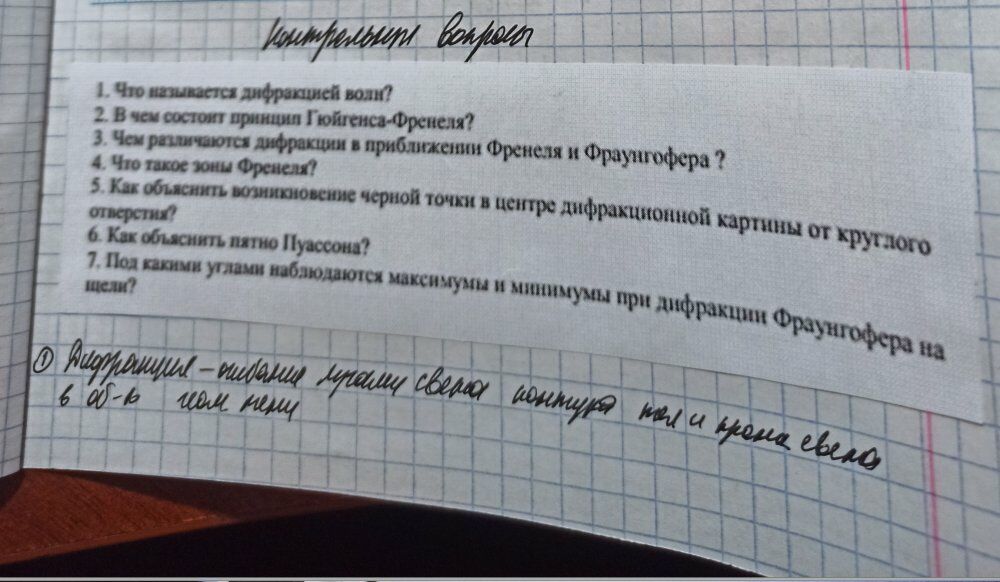 Контрольные вопросы
1. Что называется дифракцией волн?
2. В чем состоит принцип Гюйгенса-Френеля?
3. Чем различаются дифракции в приближении Френеля и Фраунгофера ?
4. Что такое зоны Френеля?
5. Как объяснить возникновение черной точки в центре дифракционной картины от круглого
отверстия?
6. Как объяснить пятно Пуассона?
7. Под какими углами наблюдаются максимумы и минимумы при дифракции Фраунгофера на
щели?
① Дифракция – огибание лучами света контура тел и прона света
в об-ь геом тени